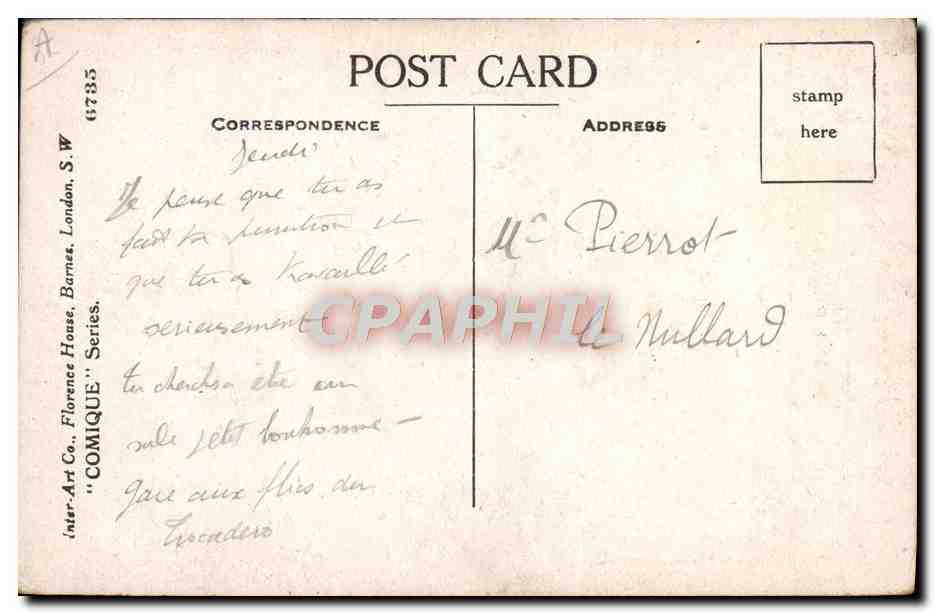 A
POST CARD
CORRESPONDENCE
ADDRESS
stamp
here
Inter-Art Co., Florence House, Barnes, London, S.W
"COMIQUE" Series.
6735
Jeudi
Je pense que tu as
fait ta punition et
que tu as travaillé
serieusement
tu cherches a être un
sale petit bonhomme —
gare aux flics du
Trocadero
Mr Pierrot
le Nullard
CPAPHIL